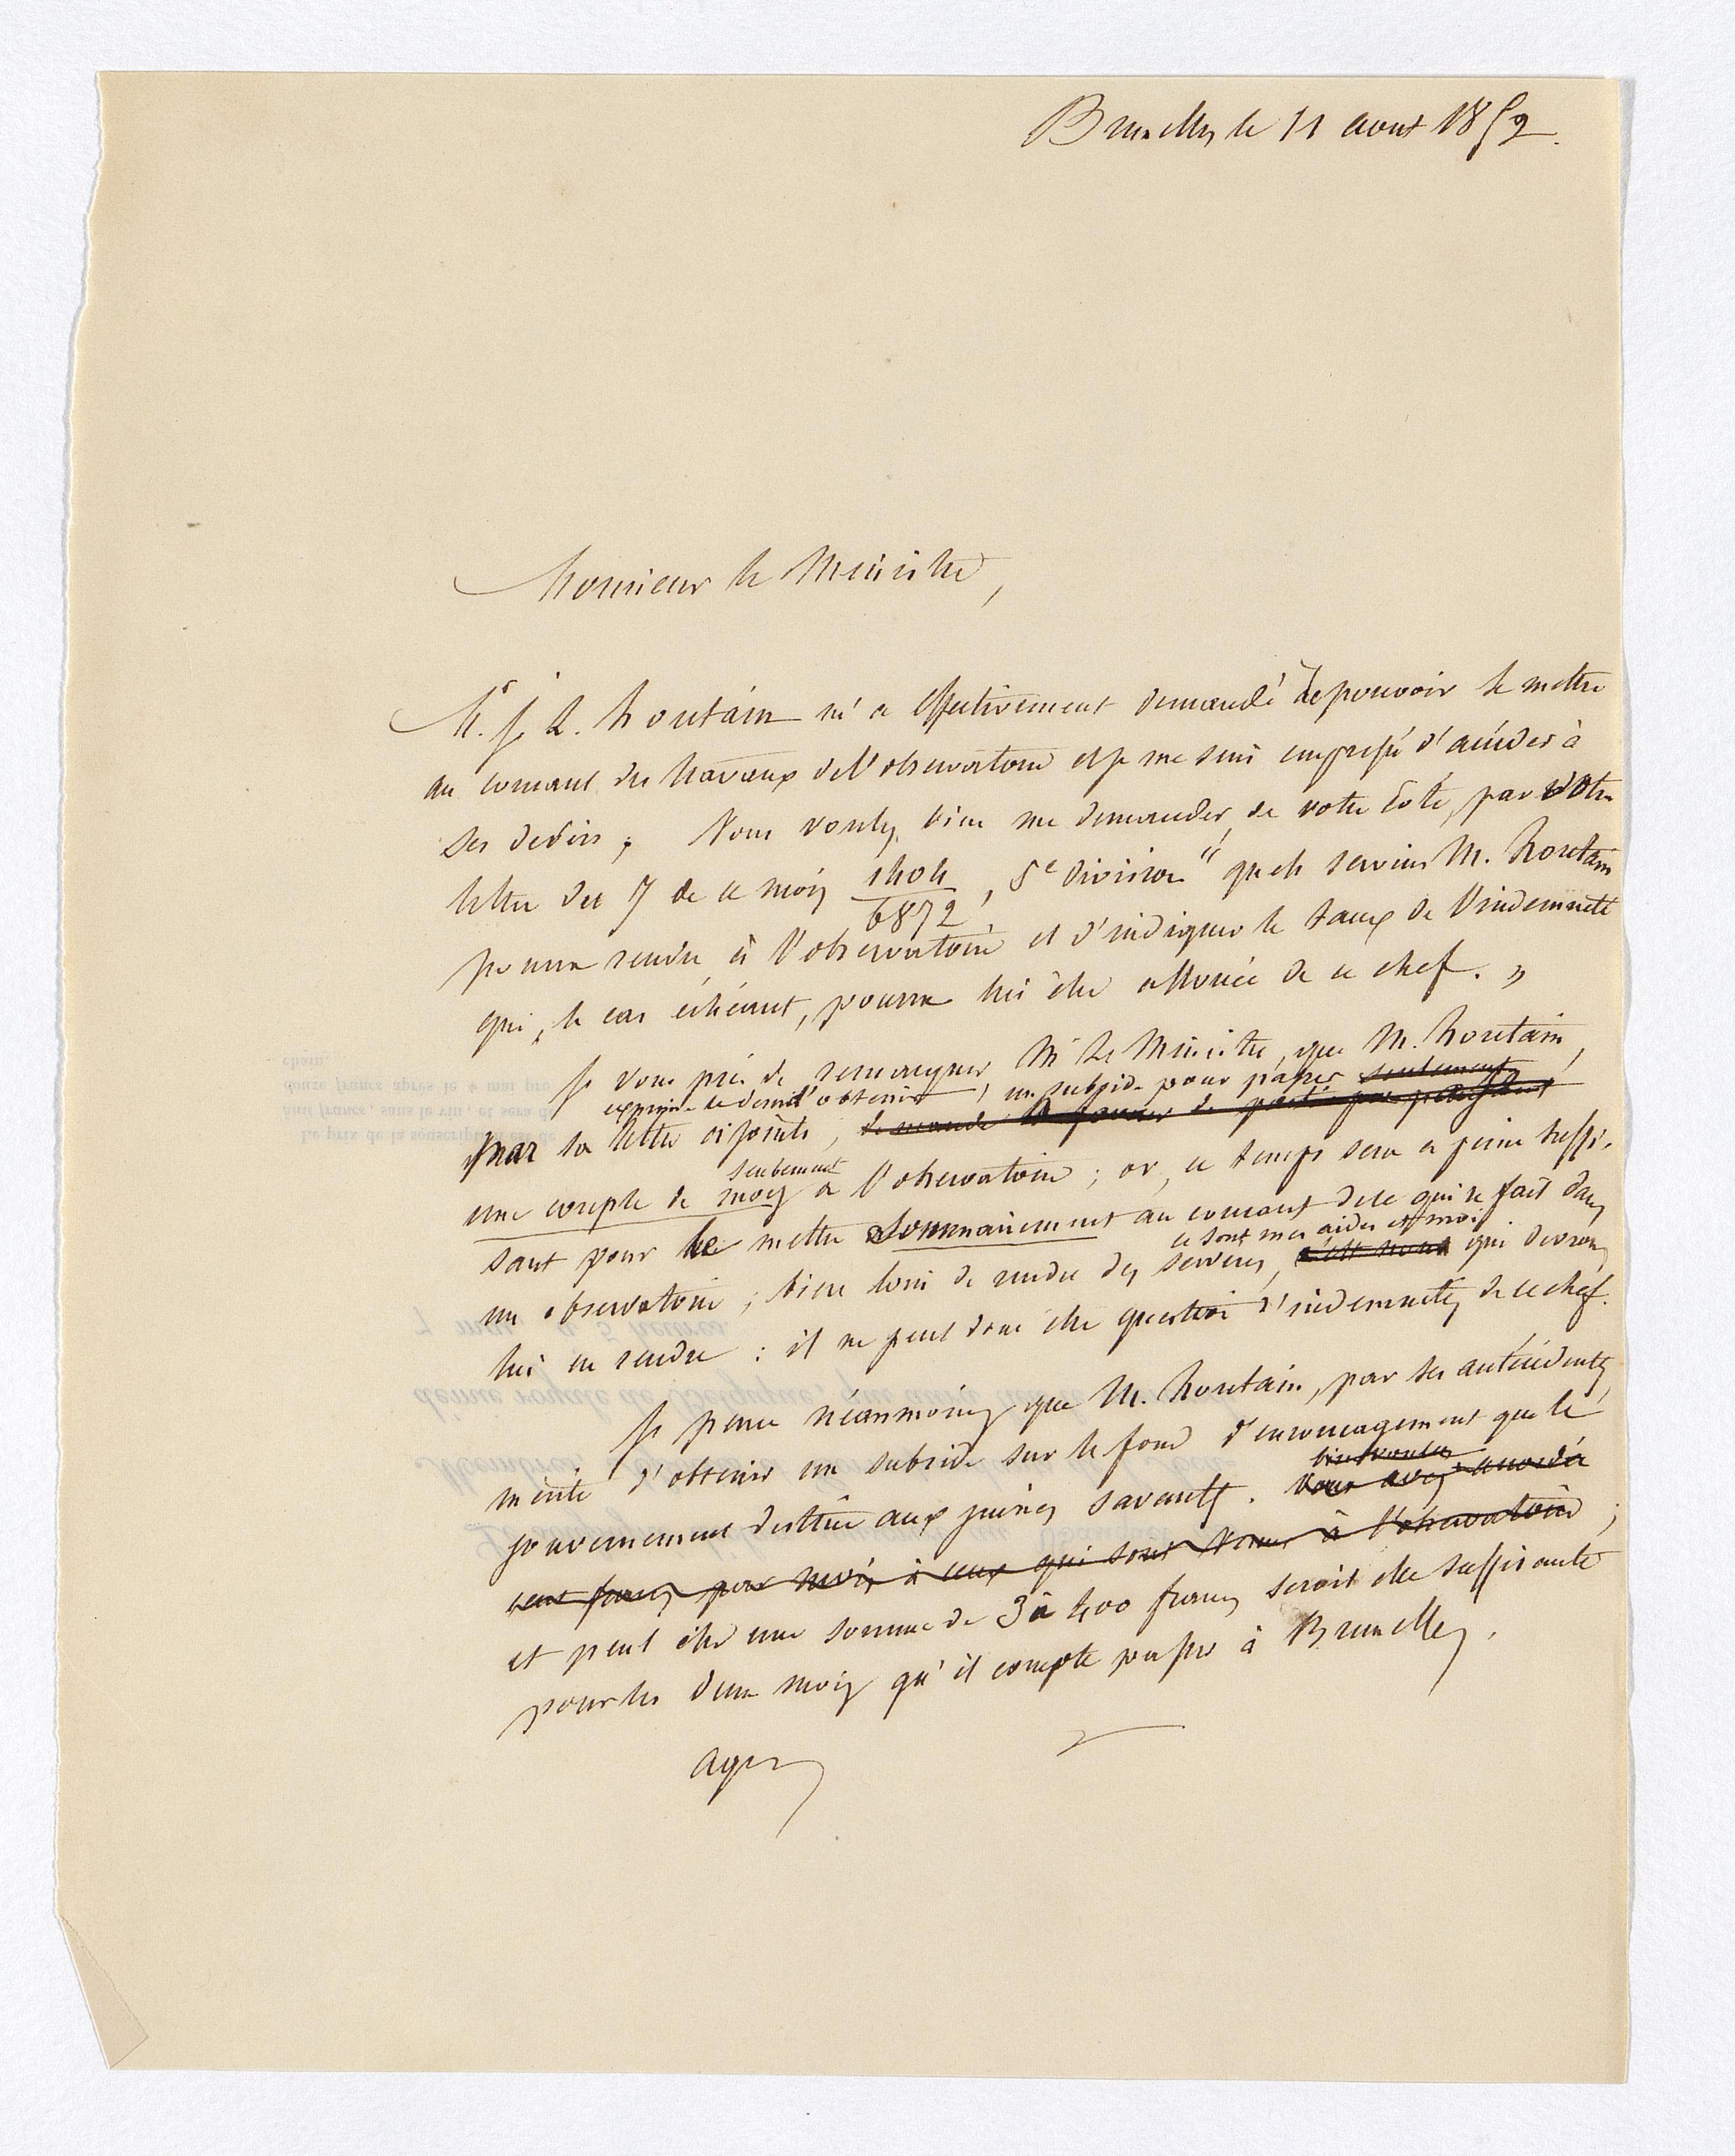 Bruxelles le 11 aout 1852.
Monsieur le Ministre,
Mr. J. L. Houtain m'a effectivement demandé de pouvoir se mettre
au courant des travaux de l'observatoire et je me suis empressé d'accéder à
ses desirs; Vous voulez bien me demander, de votre coté, par votre
lettre du 7 de ce mois 1404/6872, 5e division " quels services M. Houtain
pourra rendre à l'observatoire et d'indiquer le taux de l'indemnité
qui, le cas échéant, pourra lui être allouée de ce chef. „
Je vous prie de remarquer, Mr le Ministre, que M. Houtain,
exprime le desir d'obtenir, un subside pour passer seulement
par sa lettre ci jointe, demande la faveur de
seulement
une couple de mois à l'observatoire; or, ce temps sera à peine suffi-
sant pour le mettre sommairement au courant de ce qui se fait dans
ce sont mes aides et moi
un observatoire; bien loin de rendre des services, c'est nous qui devrons
lui en rendre: il ne peut donc être question d'indemnités de ce chef.
Je pense néanmoins que M. Houtain, par ses antécédents,
mérite d'obtenir un subside sur le fond d'encouragement que le
bien voulu
gouvernement destine aux jeunes savants. Vous avez accordé
cent francs par mois à ceux qui sont venus à l'observatoire;
et peut être une somme de 3 à 400 francs serait elle suffisante
pour les deux mois qu'il compte passer à Bruxelles.
agrez